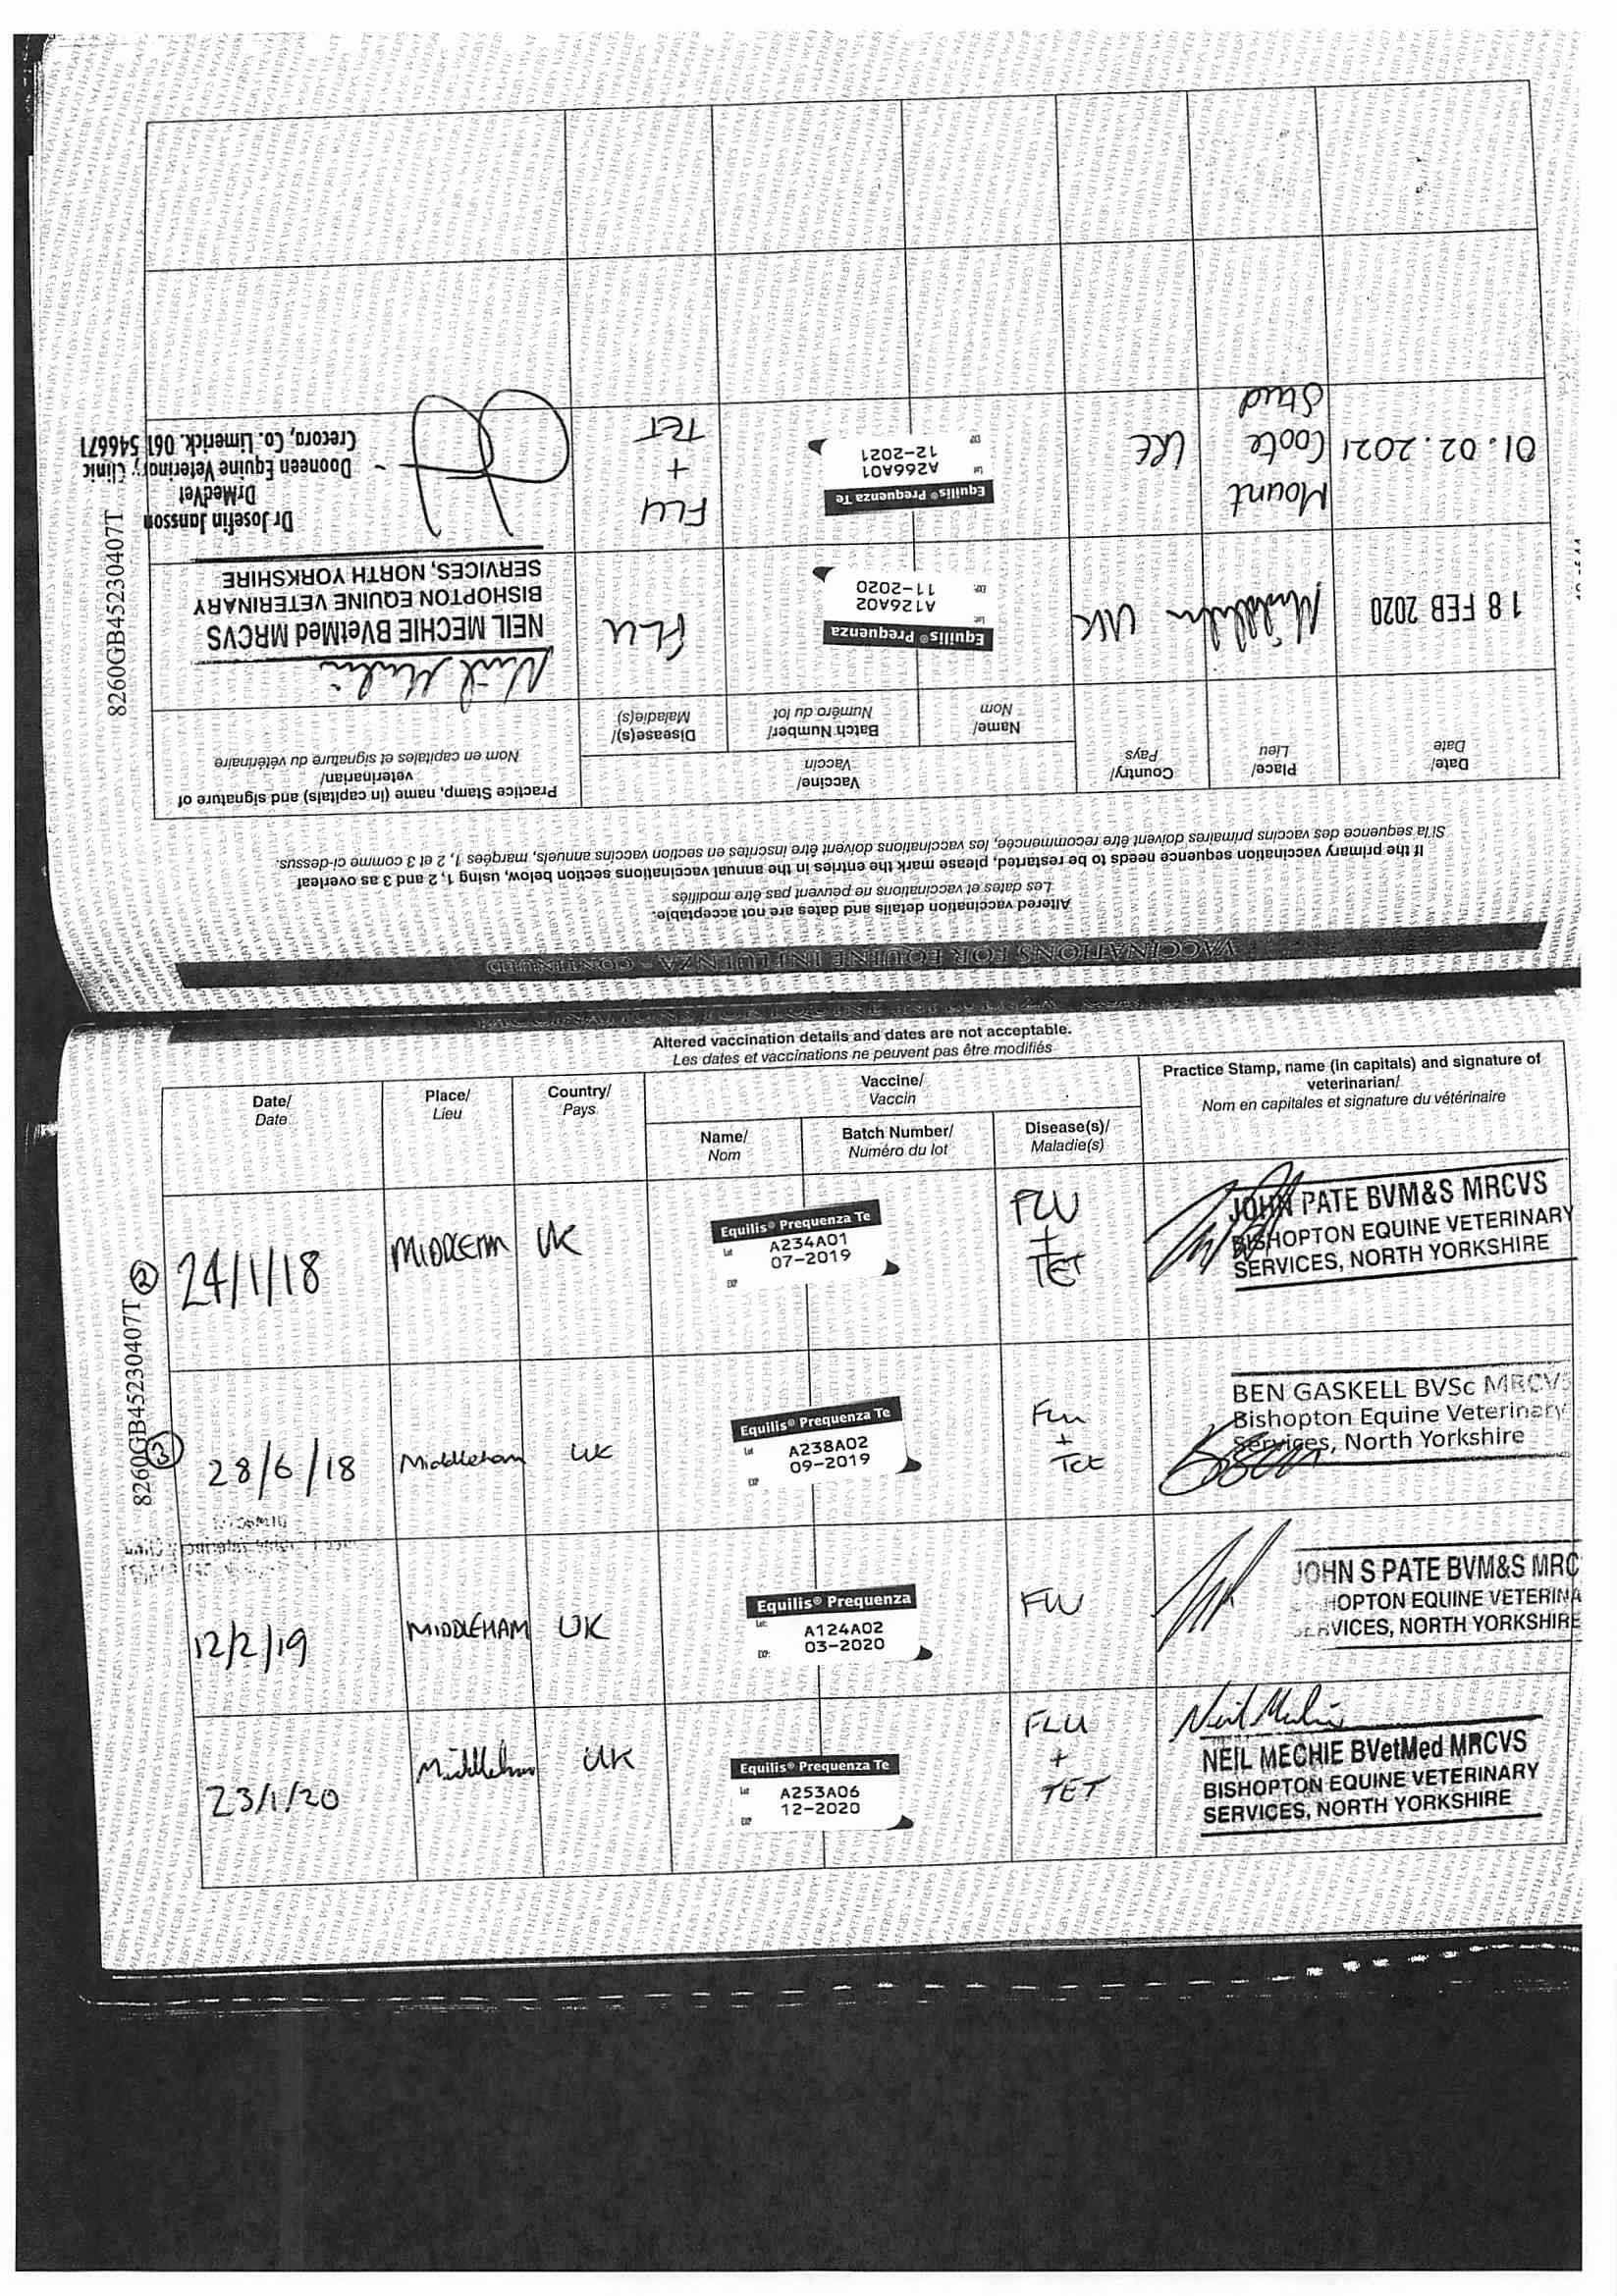 VACCINATIONS FOR EQUINE INFLUENZA - CONTINUED
Altered vaccination details and dates are not acceptable.
Les dates et vaccinations ne peuvent pas être modifiés
If the primary vaccination sequence needs to be restarted, please mark the entries in the annual vaccinations section below, using 1, 2 and 3 as overleaf
Si la sequence des vaccins primaires doivent être recommencée, les vaccinations doivent être inscrites en section vaccins annuels, marqées 1, 2 et 3 comme ci-dessus.
Date/
Date
Place/
Lieu
Country/
Pays
Vaccine/
Vaccin
Name/
Nom
Batch Number/
Numéro du lot
Disease(s)/
Maladie(s)
Practice Stamp, name (in capitals) and signature of
veterinarian/
Nom en capitales et signature du vétérinaire
18 FEB 2020
Middleham
UK
Equilis® Prequenza
Lot:
A126A02
EXP:
11-2020
FLU
Neil Mechie
NEIL MECHIE BVetMed MRCVS
BISHOPTON EQUINE VETERINARY
SERVICES, NORTH YORKSHIRE
01.02.2021
Mount
Coote
Stud
IRE
Equilis® Prequenza Te
Lot
A266A01
EXP
12-2021
FLU
+
TET
Dr Josefin Jansson
DrMedVet
Dooneen Equine Veterinary Clinic
Crecora, Co. Limerick. 061 546671
8260GB45230407T
Altered vaccination details and dates are not acceptable.
Les dates et vaccinations ne peuvent pas être modifiés
Date/
Date
Place/
Lieu
Country/
Pays
Vaccine/
Vaccin
Name/
Nom
Batch Number/
Numéro du lot
Disease(s)/
Maladie(s)
Practice Stamp, name (in capitals) and signature of
veterinarian/
Nom en capitales et signature du vétérinaire
8260GB45230407T
2
24/1/18
UK
Equilis® Prequenza Te
Lot
A234A01
07-2019
EXP
FLU
+
TET
JOHN PATE BVM&S MRCVS
BISHOPTON EQUINE VETERINARY
SERVICES, NORTH YORKSHIRE
3
28/6/18
Middleham
UK
Equilis® Prequenza Te
Lot
A238A02
09-2019
EXP
Flu
+
Tet
BEN GASKELL BVSc MRCVS
Bishopton Equine Veterinary
Services, North Yorkshire
12/2/19
MIDDLEHAM
UK
Equilis® Prequenza
Lot:
A124A02
03-2020
EXP:
FLU
JOHN S PATE BVM&S MRC
HOPTON EQUINE VETERINA
SERVICES, NORTH YORKSHIRE
23/1/20
Middleham
UK
Equilis® Prequenza Te
Lot
A253A06
12-2020
EXP
FLU
+
TET
Neil Mechie
NEIL MECHIE BVetMed MRCVS
BISHOPTON EQUINE VETERINARY
SERVICES, NORTH YORKSHIRE